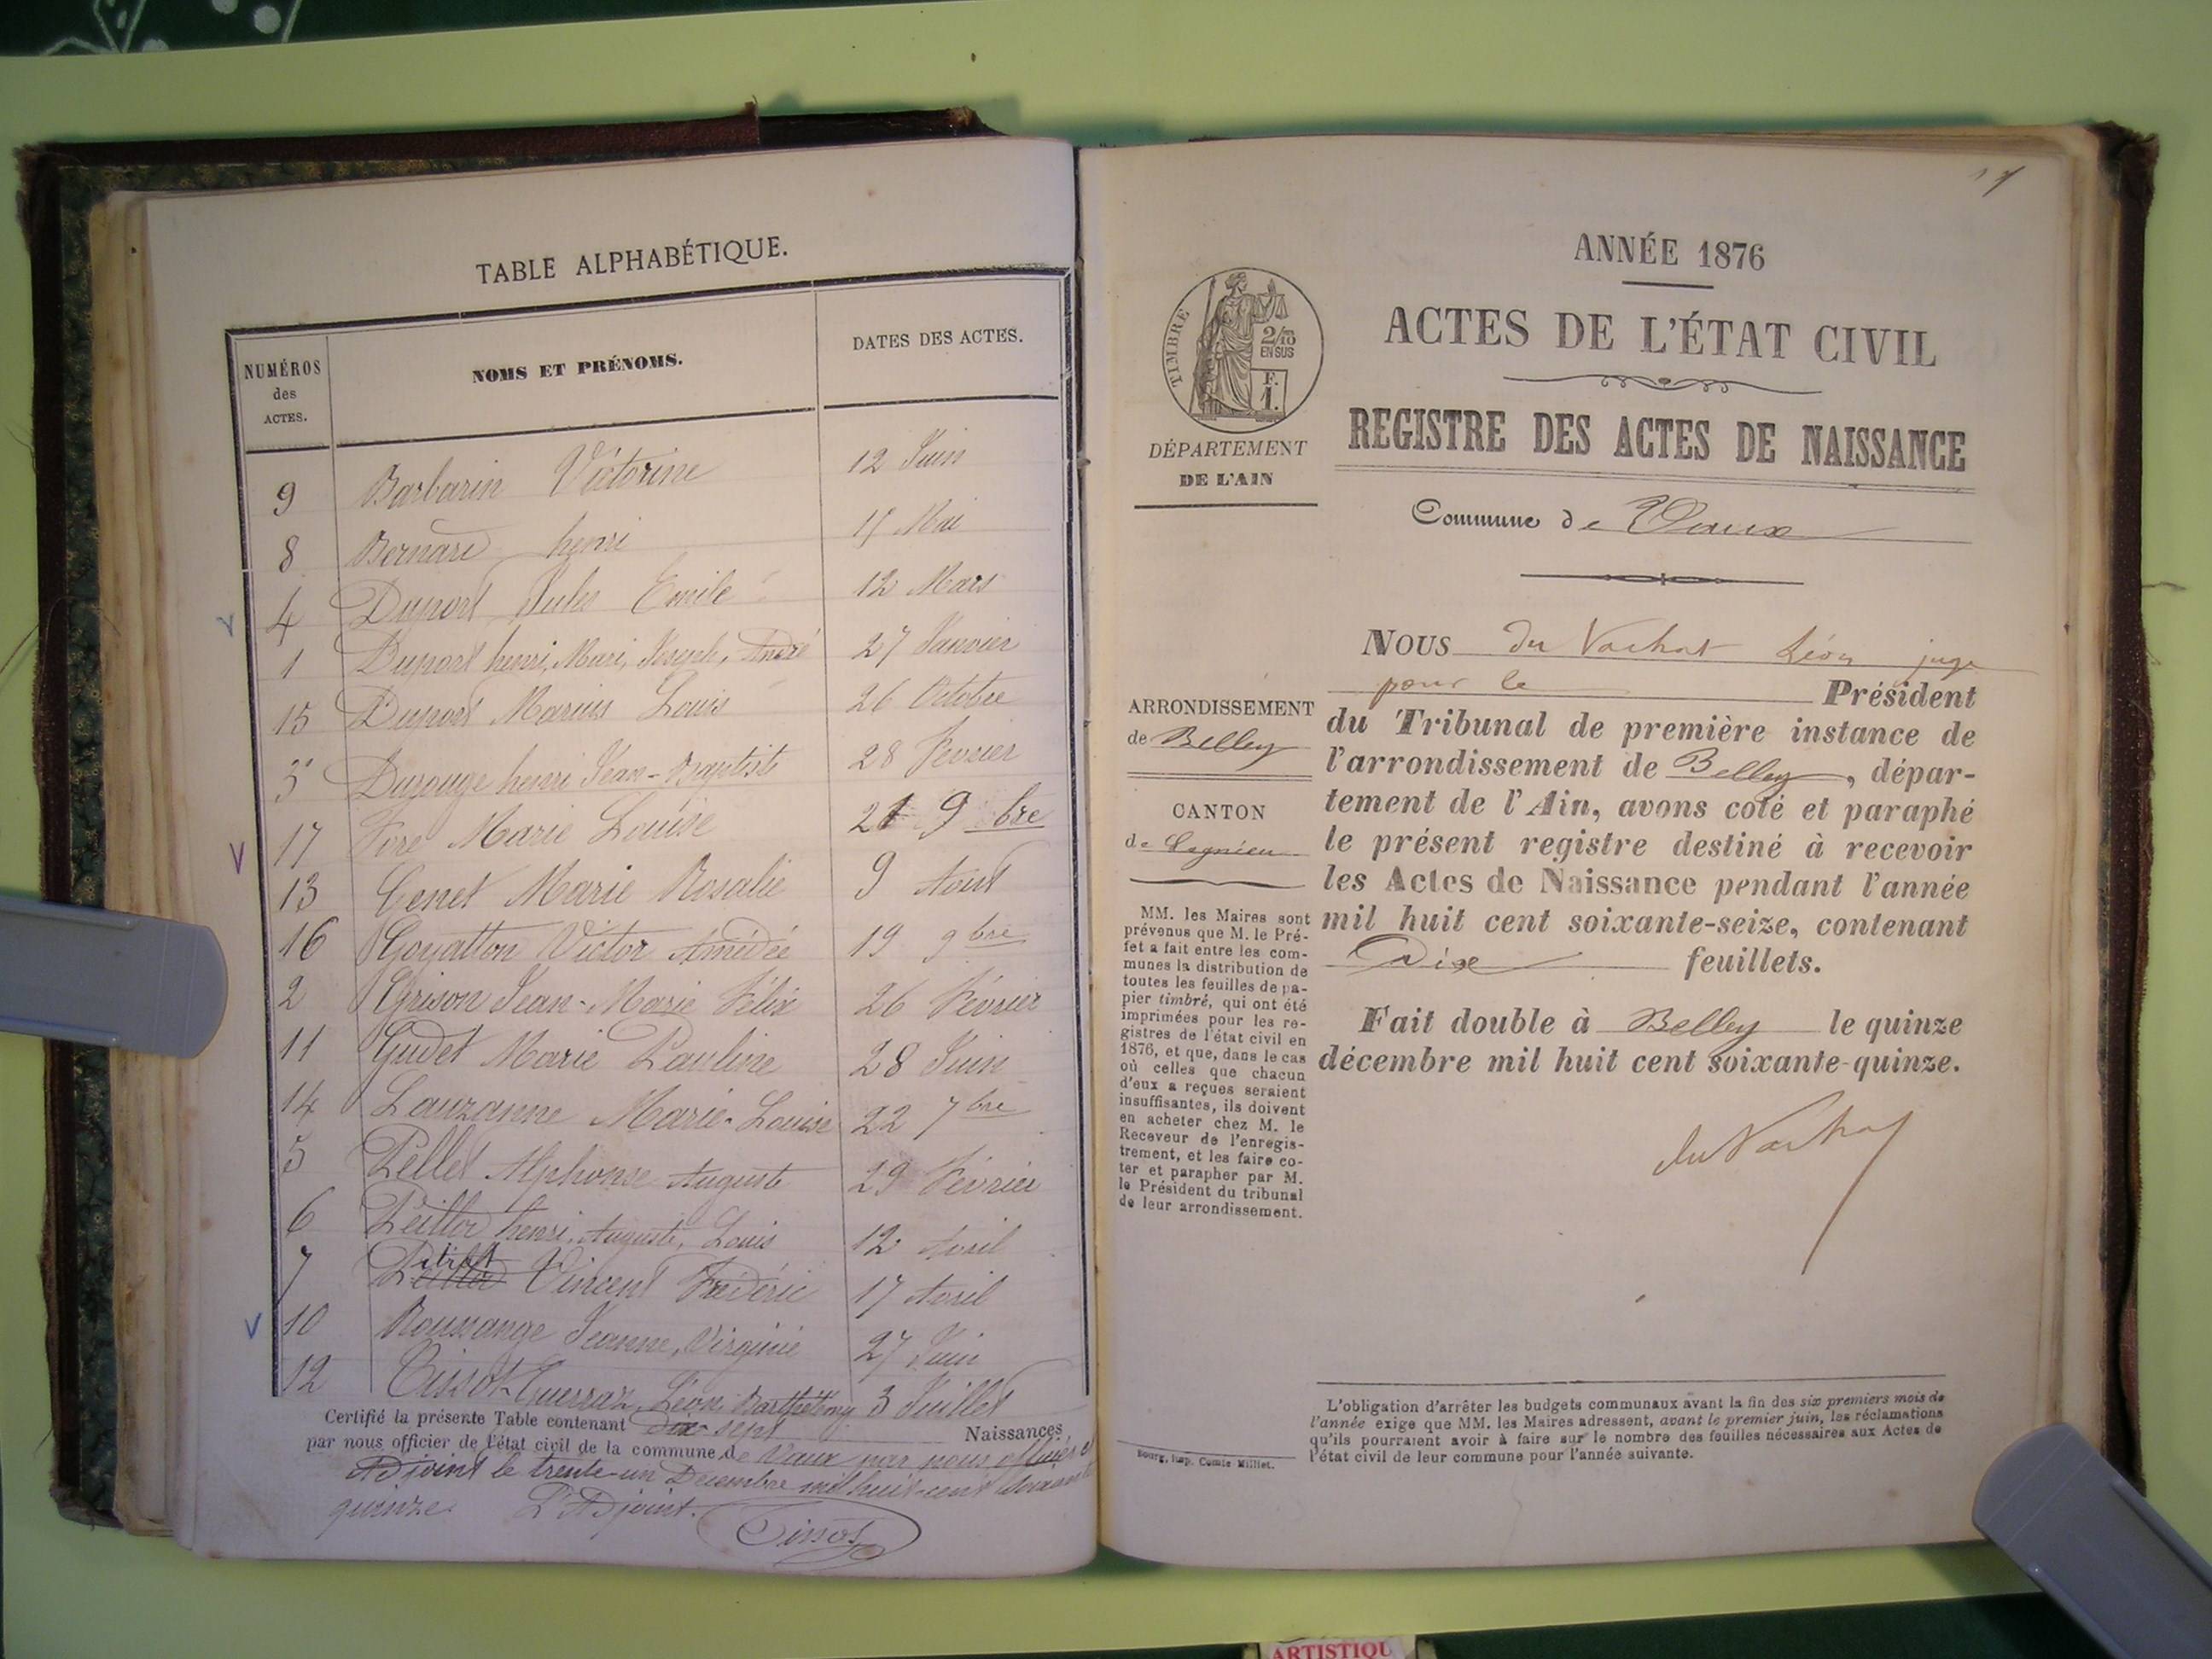 TABLE ALPHABÉTIQUE.
NUMÉROS
des
ACTES.
NOMS ET PRÉNOMS.
DATES DES ACTES.
9 Barbarin Victorine 12 Juin
8 Bernard henri 15 Mai
4 Duport Jules Emile 12 Mars
1 Duport henri, Mari, Joseph, André 27 Janvier
15 Duport Marius Louis 26 Octobre
3 henri Jean-Baptiste 28 Fevrier
17 Fore Marie Louise 21 9 bre
13 Genet Marie Rosalie 9 Aout
16 Goyatton Victor Amédée 19 9 bre
2 Grison Jean-Marie Félix 26 Février
11 Gudet Marie Pauline 28 Juin
14 Lauzanne Marie-Louise 22 7 bre
5 Pellet Alphonse Auguste 29 Février
6 henri, Auguste, Louis 12 Avril
7 Vincent Frédéric 17 Avril
10 Roussange Jeanne, Virginie 27 Juin
12 Tissot Léon Barthélémy 3 Juillet
Certifié la présente Table contenant dix sept Naissances
par nous officier de l'état civil de la commune de Vaux par nous
Adjoint le trente-un Decembre mil huit-cent
quinze. L'Adjoint.
Tissot
ANNÉE 1876
ACTES DE L'ÉTAT CIVIL
REGISTRE DES ACTES DE NAISSANCE
TIMBRE
2/10
EN SUS
F.
1.
DÉPARTEMENT
DE L'AIN
Commune de Vaux
NOUS du Vachat Léon juge
pour le Président
du Tribunal de première instance de
l'arrondissement de Belley, dépar-
tement de l'Ain, avons coté et paraphé
le présent registre destiné à recevoir
les Actes de Naissance pendant l'année
mil huit cent soixante-seize, contenant
Dix feuillets.
Fait double à Belley le quinze
décembre mil huit cent soixante-quinze.
du Vachat
ARRONDISSEMENT
de Belley
CANTON
de Lagnieu
MM. les Maires sont
prévenus que M. le Pré-
fet a fait entre les com-
munes la distribution de
toutes les feuilles de pa-
pier timbré, qui ont été
imprimées pour les re-
gistres de l'état civil en
1876, et que, dans le cas
où celles que chacun
d'eux a reçues seraient
insuffisantes, ils doivent
en acheter chez M. le
Receveur de l'enregis-
trement, et les faire co-
ter et parapher par M.
le Président du tribunal
de leur arrondissement.
L'obligation d'arrêter les budgets communaux avant la fin des six premiers mois de
l'année exige que MM. les Maires adressent, avant le premier juin, les réclamations
qu'ils pourraient avoir à faire sur le nombre des feuilles nécessaires aux Actes de
l'état civil de leur commune pour l'année suivante.
Bourg, imp. Comte-Milliet.
ARTISTIQU